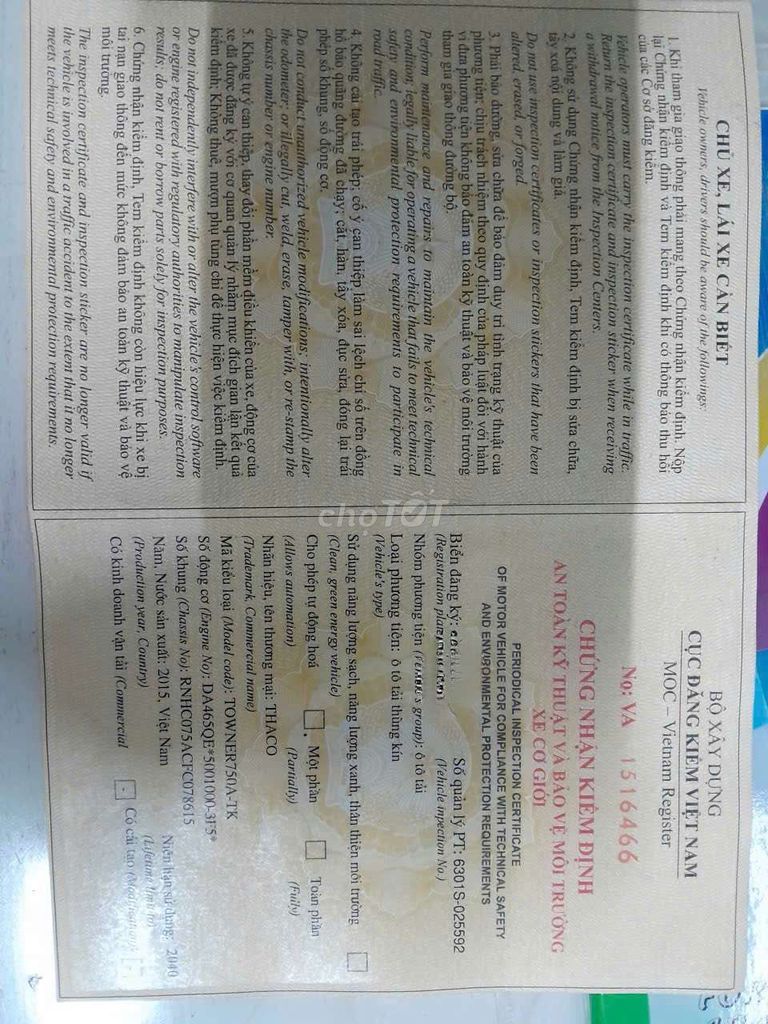 CHỦ XE, LÁI XE CẦN BIẾT
Vehicle owners, drivers should be aware of the followings:
1. Khi tham gia giao thông phải mang theo Chứng nhận kiểm định. Nộp
lại Chứng nhận kiểm định và Tem kiểm định khi có thông báo thu hồi
của các Cơ sở đăng kiểm.
Vehicle operators must carry the inspection certificate while in traffic.
Return the inspection certificate and inspection sticker when receiving
a withdrawal notice from the Inspection Centers.
2. Không sử dụng Chứng nhận kiểm định, Tem kiểm định bị sửa chữa,
tẩy xoá nội dung và làm giả.
Do not use inspection certificates or inspection stickers that have been
altered, erased, or forged.
3. Phải bảo dưỡng, sửa chữa để bảo đảm duy trì tình trạng kỹ thuật của
phương tiện; chịu trách nhiệm theo quy định của pháp luật đối với hành
vi đưa phương tiện không bảo đảm an toàn kỹ thuật và bảo vệ môi trường
tham gia giao thông đường bộ.
Perform maintenance and repairs to maintain the vehicle's technical
condition; legally liable for operating a vehicle that fails to meet technical
safety and environmental protection requirements to participate in
road traffic.
4. Không cải tạo trái phép; cố ý can thiệp làm sai lệch chỉ số trên đồng
hồ báo quãng đường đã chạy; cắt, hàn, tẩy xóa, đục sửa, đóng lại trái
phép số khung, số động cơ.
Do not conduct unauthorized vehicle modifications; intentionally alter
the odometer; or illegally cut, weld, erase, tamper with, or re-stamp the
chassis number or engine number.
5. Không tự ý can thiệp, thay đổi phần mềm điều khiển của xe, động cơ của
xe đã được đăng ký với cơ quan quản lý nhằm mục đích gian lận kết quả
kiểm định; Không thuê, mượn phụ tùng chỉ để thực hiện việc kiểm định.
Do not independently interfere with or alter the vehicle's control software
or engine registered with regulatory authorities to manipulate inspection
results; do not rent or borrow parts solely for inspection purposes.
6. Chứng nhận kiểm định, Tem kiểm định không còn hiệu lực khi xe bị
tai nạn giao thông đến mức không đảm bảo an toàn kỹ thuật và bảo vệ
môi trường.
The inspection certificate and inspection sticker are no longer valid if
the vehicle is involved in a traffic accident to the extent that it no longer
meets technical safety and environmental protection requirements.
BỘ XÂY DỰNG
CỤC ĐĂNG KIỂM VIỆT NAM
MOC – Vietnam Register
No: VA 1516466
CHỨNG NHẬN KIỂM ĐỊNH
AN TOÀN KỸ THUẬT VÀ BẢO VỆ MÔI TRƯỜNG
XE CƠ GIỚI
PERIODICAL INSPECTION CERTIFICATE
OF MOTOR VEHICLE FOR COMPLIANCE WITH TECHNICAL SAFETY
AND ENVIRONMENTAL PROTECTION REQUIREMENTS
Biển đăng ký: Số quản lý PT: 6301S-025592
(Registration plate (Vehicle inpection No.)
Nhóm phương tiện (Vehicle's group): ô tô tải
Loại phương tiện: ô tô tải thùng kín
(Vehicle's type)
Sử dụng năng lượng sạch, năng lượng xanh, thân thiện môi trường
(Clean, green energy vehicle)
Cho phép tự động hoá Một phần Toàn phần
(Allows automation) (Partially) (Fully)
Nhãn hiệu, tên thương mại: THACO
(Trademark, Commercial name)
Mã kiểu loại (Model code): TOWNER750A-TK
Số động cơ (Engine No): DA465QE*5001000-3F5*
Số khung (Chassis No): RNHC075ACFC078615
Năm, Nước sản xuất: 2015, Việt Nam Niên hạn sử dụng: 2040
(Production year, Country) (Lifetime limit to)
Có kinh doanh vận tải (Commercial - Có cải tạo (Modification) -
choTỐT